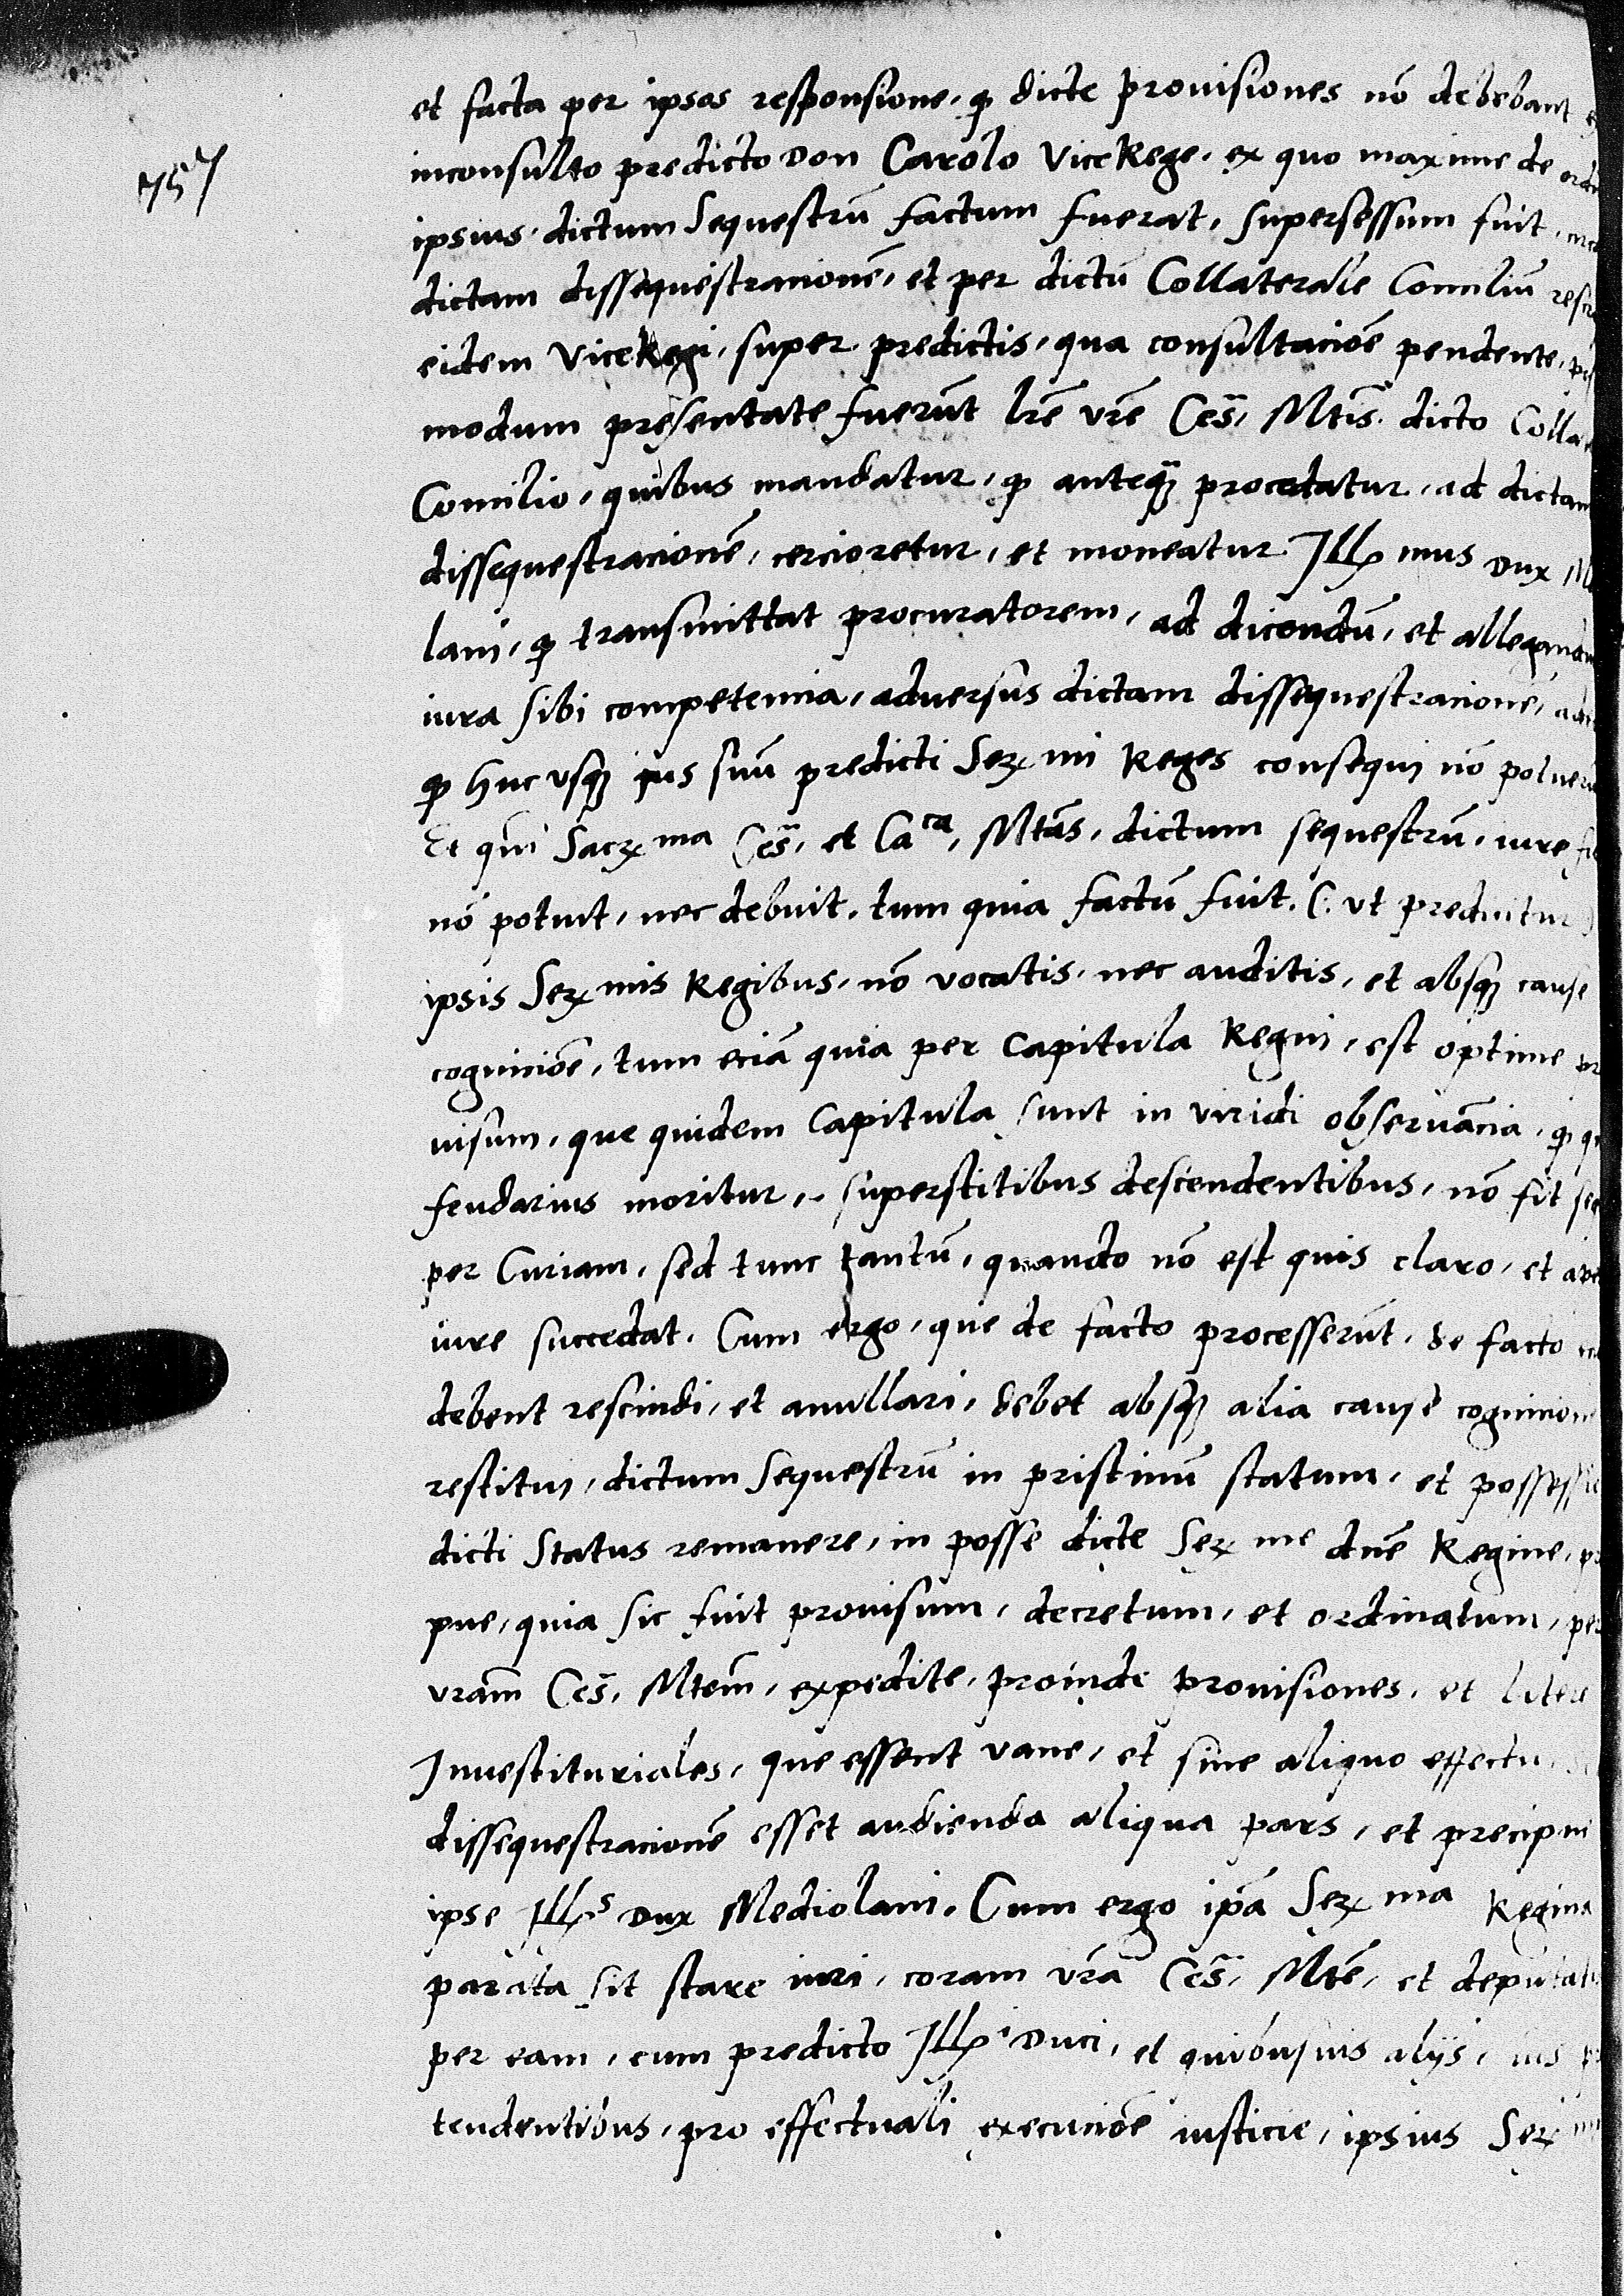 et facta per ipsos responsione, ꝙ dicte prouisiones nō debebant
757
inconsulto predicto Don Carolo Vice Rege, ex quo maxime de
ipsius, dictum Sequestrū factum fuerat, supersessum fuit,
dictam dissequestracionē, et per dictū Collaterale Consiliū
eidem Vice Regi, super predictis, qua consultaciōe pendente,
modum presentate fuerūt lrē vrē Ces̄. Mtis̄. dicto Colla
Consilio, quibus mandatur, ꝙ anteqꝫ procedatur, ad dictam
dissequestracionē, cercioretur, et moneatur Illmus Dux
lani, ꝙ transmittat procuratorem, ad dicendū, et allegand
iura sibi competencia, aduersus dictam dissequestracionē,
ꝙ huc vsqꝫ ius suū predicti Serͫmi Reges consequi nō potuer
Et qm̄ Sacrͫma Ces̄. et Caca. Mtās, dictum sequestrū, iure
nō potuit, nec debuit, tum quia factū fuit. (: vt predicitur
ipsis Serͫmis Regibus, nō vocatis, nec auditis, et absqꝫ cause
cogniciōe, tum eciā quia per Capitula Regni, est optime
uisum, que quidem Capitula sunt in viridi obseruācia, ꝙ
feudarius moritur, superstitibus descendentibus, nō fit
per Curiam, sed tunc tantū, quando nō est quis claro, et
iure succedat. Cum ergo, que de facto processerūt, de facto
debent rescindi, et anullari, debet absqꝫ alia cause cognicione
restitui, dictum Sequestrū in pristinū statum, et possessio
dicti Status remanere, in posse dicte Serͫme dnē Regine,
pue, quia sic fuit prouisum, decretum, et ordinatum, per
vram̄ Ces̄. Mtem̄, expedite, proinde prouisiones, et litere
Inuestituriales, que essent vane, et sine aliquo effectu,
dissequestracionē esset audienda aliqua pars, et precipue
ipse Ills Dux Mediolani. Cum ergo ipā Serͫma Regina
parata sit stare iuri, coram vrā Ces̄. Mtē, et deputat
per eam, cum predicto Illi Duci, et quibusuis alijs, ius
tendentibus, pro effectuali execuciōe iusticie, ipsius Ser